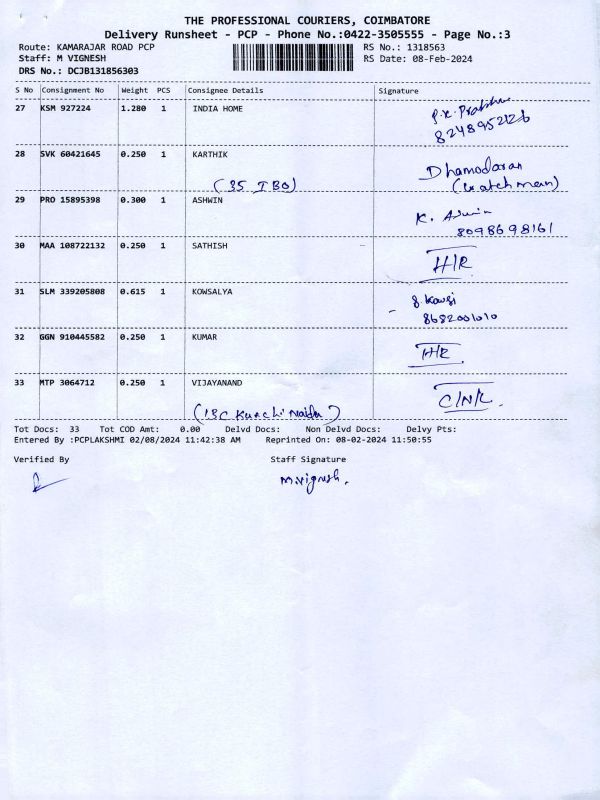 THE PROFESSIONAL COURIERS, COIMBATORE
Delivery Runsheet - PCP - Phone No.:0422-3505555 - Page No.:3
Route: KAMARAJAR ROAD PCP RS No.: 1318563
Staff: M VIGNESH RS Date: 08-Feb-2024
DRS No.: DCJB131856303
S No Consignment No Weight PCS Consignee Details Signature
27 KSM 927224 1.280 1 INDIA HOME P.K. Prabhu
8248952126
28 SVK 60421645 0.250 1 KARTHIK Dhamodaran
(35 IBO) (watchman)
29 PRO 15895398 0.300 1 ASHWIN K. Aswin
8098698161
30 MAA 108722132 0.250 1 SATHISH H/R
31 SLM 339205808 0.615 1 KOWSALYA g. Kowsi
8682001010
32 GGN 910445582 0.250 1 KUMAR H/R
33 MTP 3064712 0.250 1 VIJAYANAND C/N/R
Naidu)
Tot Docs: 33 Tot COD Amt: 0.00 Delvd Docs: Non Delvd Docs: Delvy Pts:
Entered By :PCPLAKSHMI 02/08/2024 11:42:38 AM Reprinted On: 08-02-2024 11:50:55
Verified By Staff Signature
M.Vignesh.